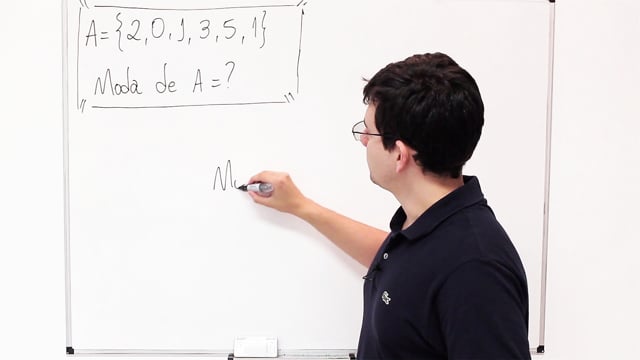 A={2,0,1,3,5,1}
Moda de A=?
M